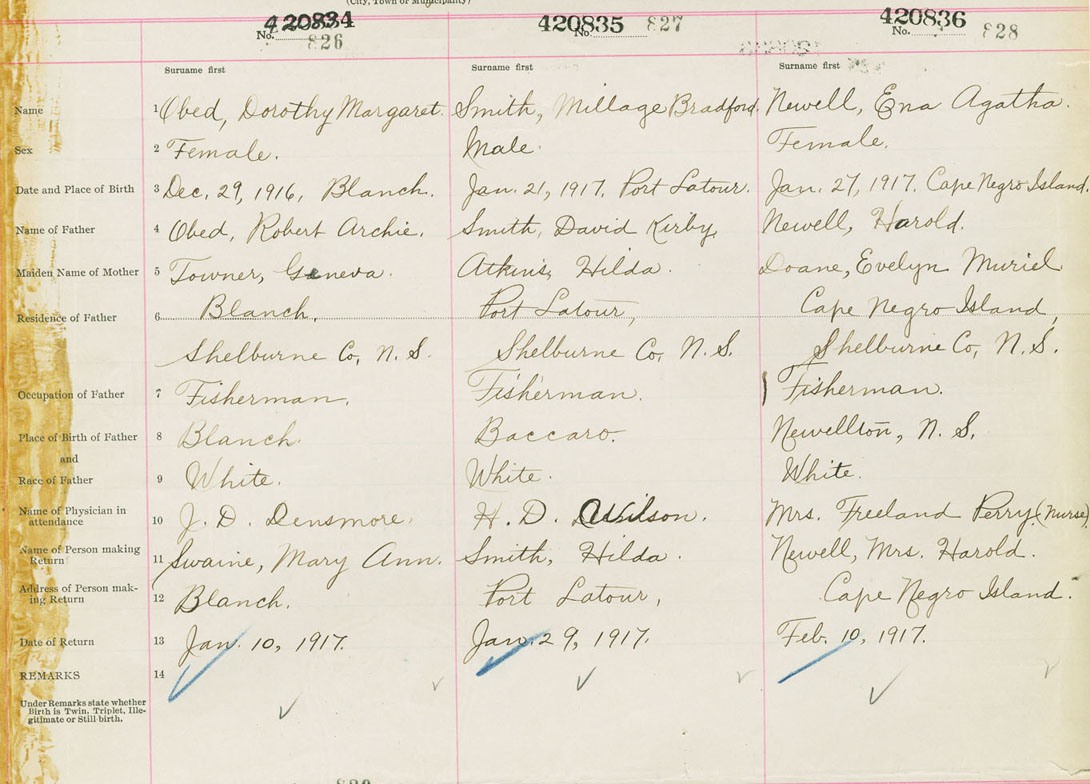 (City, Town or Municipality)
420834 420835 420836
No. 826 No. 827 No. 828
Surname first Surname first Surname first
Name 1 Obed, Dorothy Margaret. Smith, Millage Bradford. Newell, Ena Agatha.
Sex 2 Female. Male. Female.
Date and Place of Birth 3 Dec. 29, 1916, Blanch. Jan. 21, 1917. Port Latour. Jan. 27, 1917. Cape Negro Island.
Name of Father 4 Obed, Robert Archie. Smith, David Kirby. Newell, Harold.
Maiden Name of Mother 5 Towner, Geneva. Atkins, Hilda. Doane, Evelyn Muriel
Residence of Father 6 Blanch, Port Latour, Cape Negro Island,
Shelburne Co, N. S. Shelburne Co, N. S. Shelburne Co, N. S.
Occupation of Father 7 Fisherman. Fisherman. Fisherman.
Place of Birth of Father 8 Blanch. Baccaro. Newellton, N. S.
and
Race of Father 9 White. White. White.
Name of Physician in
attendance 10 J. D. Densmore. H. D. Wilson. Mrs. Freeland Perry (Nurse)
Name of Person making
Return 11 Swaine, Mary Ann. Smith, Hilda. Newell, Mrs. Harold.
Address of Person mak-
ing Return 12 Blanch. Port Latour, Cape Negro Island.
Date of Return 13 Jan. 10, 1917. Jan. 29, 1917. Feb. 10, 1917.
REMARKS 14
Under Remarks state whether
Birth is Twin, Triplet, Ille-
gitimate or Still-birth.